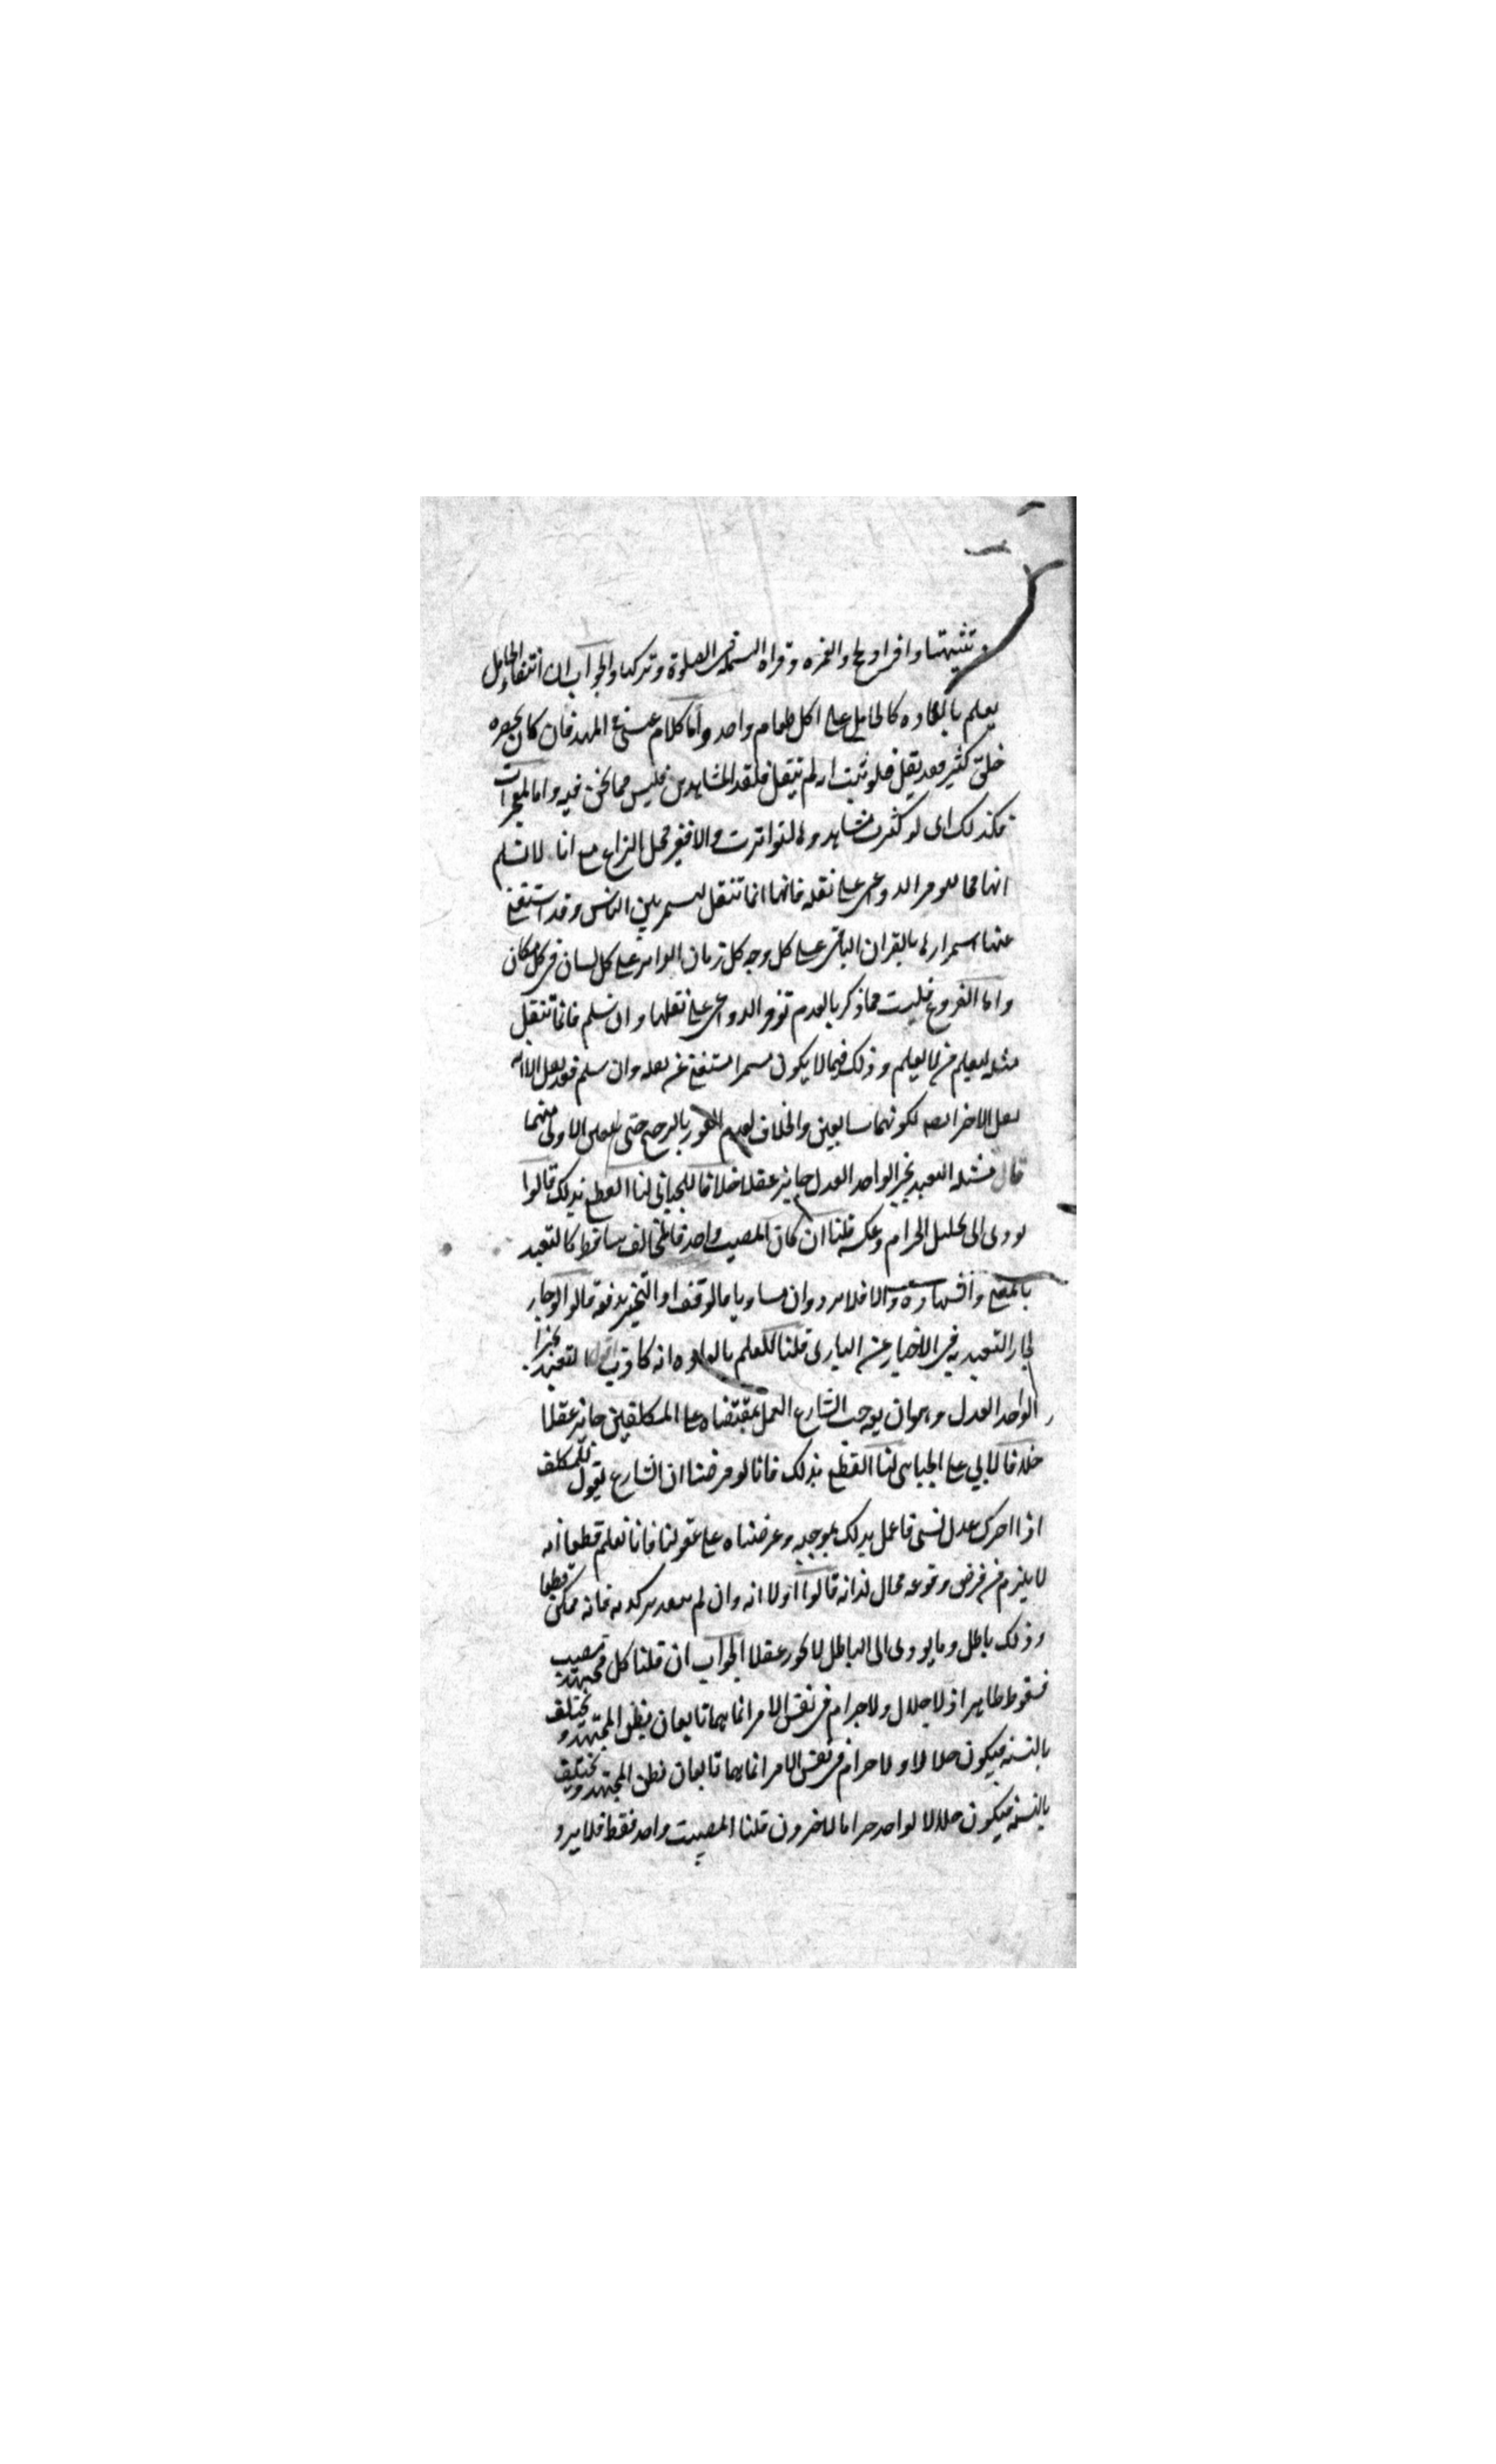 تثنيتها وافراد الحج والعمره وقراه البسمله فى الصلوة وتركها والجواب ان انتفا الحامل
يعلم بالعاده كالحامل على اكل طعام واحد واما كلام عيسى فى المهد فان كان بحضره
خلق كثير فقد نقل فلو ثبت انه لم ينقل فلقد المشاهدين فليس مما نحن فيه واما المعجزات
فكذلك اى لو كثرت مشاهدوها لتواترت والا فغير محل النزاع مع انا لا نسلم
انها مما الدواعى على نقله فانها انما تنقل لتستمر بين الناس وقد استغنى
عنها استمرارها بالقران الباقى على كل وجه كل زمان الدائر على كل لسان فى كل مكان
واما الفروع فليست مما ذكر بالعدم توفر الدواعى على نقلها وان سلم فانما تنقل
مثله ليعلم من لا يعلم وذلك فيما لا يكون مستمرا مستغنى عن نقله وان سلم فقد نقل الا انه
نقل الاخر ايضه لكونهما سايغين والخلاف لعدم بالترجيح حتى الاولى منهما
قال مسئله التعبد بخبر الواحد العدل جايز عقلا خلافا للجبائى لنا القطع بذلك قالوا
يودى الى تحليل الحرام وعكسه قلنا ان كان المصيب واحد فالمخالف ساقط كالتعبد
بالمفتى والشهادة والا فلا يرد وان تساويا فالوقف او التخيير يدفعه قالوا لو جاز
لجاز التعبد به فى الاخبار عن البارى قلنا للعلم بالعاده انه كاذب اقول التعبد بخبر
الواحد العدل وهو ان يوجب الشارع العمل بمقتضاه على المكلفين جايز عقلا
خلافا لابي على الجبائى لنا القطع بذلك فانا لو فرضنا ان الشارع يقول للمكلف
اذا اخبرك عدل بشى فاعمل بموجبه وعرضناه على عقولنا فانا نعلم قطعا انه
لا يلزم من فرض وقوعه محال لذاته قالوا اولا انه وان لم فانه ممكن قطعا
وذلك باطل وما يودى الى الباطل لا يجوز عقلا الجواب ان قلنا كل مجتهد مصيب
فسقوطه ظاهر اذ لا حلال ولا حرام فى نفس الامر انما هما تابعان لظن المجتهد ويختلف
بالنسبه فيكون حلالا ولا حرام فى نفس الامر انما هما تابعان لظن المجتهد ويختلف
بالنسبه فيكون حلالا لواحد حراما لاخر وان قلنا المصيب واحد فقط فلا يرد